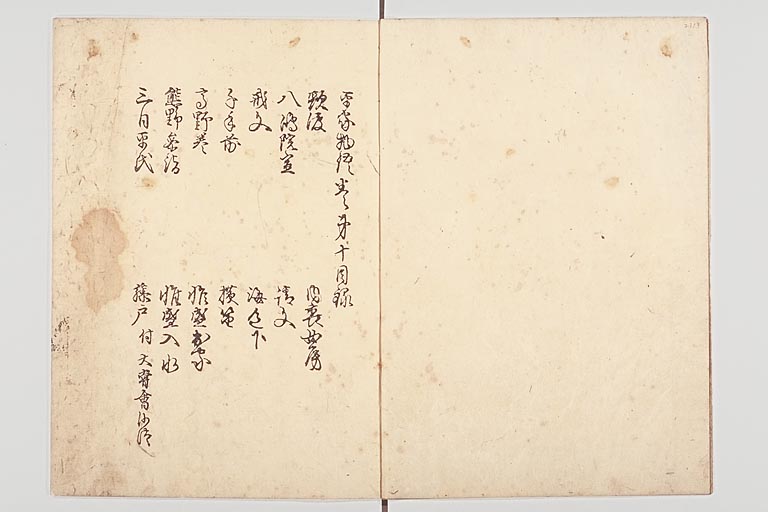 平家物語巻第十目録
頸渡 内裏女房
八嶋院宣 請文
戒文 海道下
千手前 横笛
高野巻 維盛出家
熊野参詣 維盛入水
三日平氏 藤戸 付大嘗会沙汰